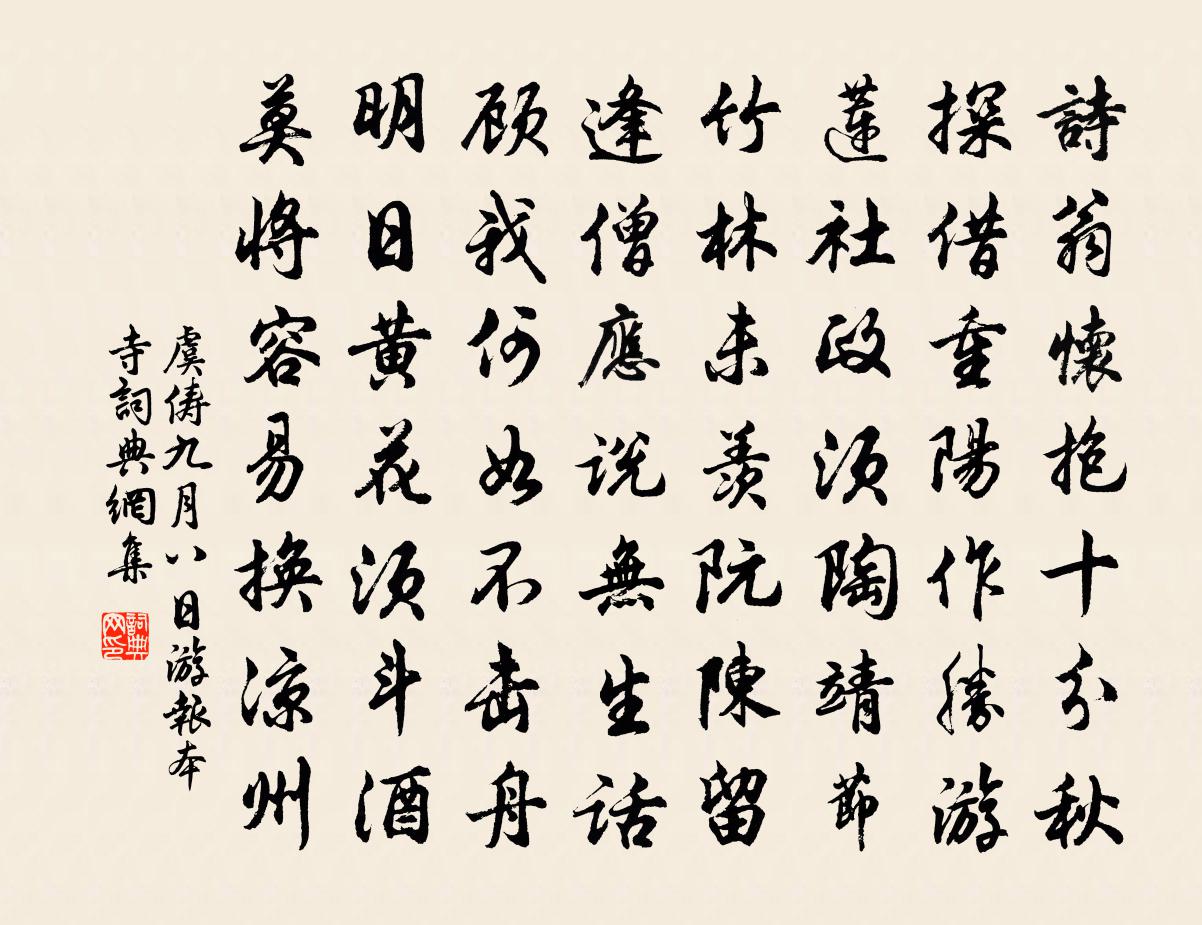 詩翁懷抱十分秋
探借重陽作勝游
蓮社政須陶靖節
竹林未羨阮陳留
逢僧應説無生話
顧我何如不击舟
明日黄花須斗酒
莫將容易換涼州
虞儔九月八日游報本
寺詞典網集
詞典网印